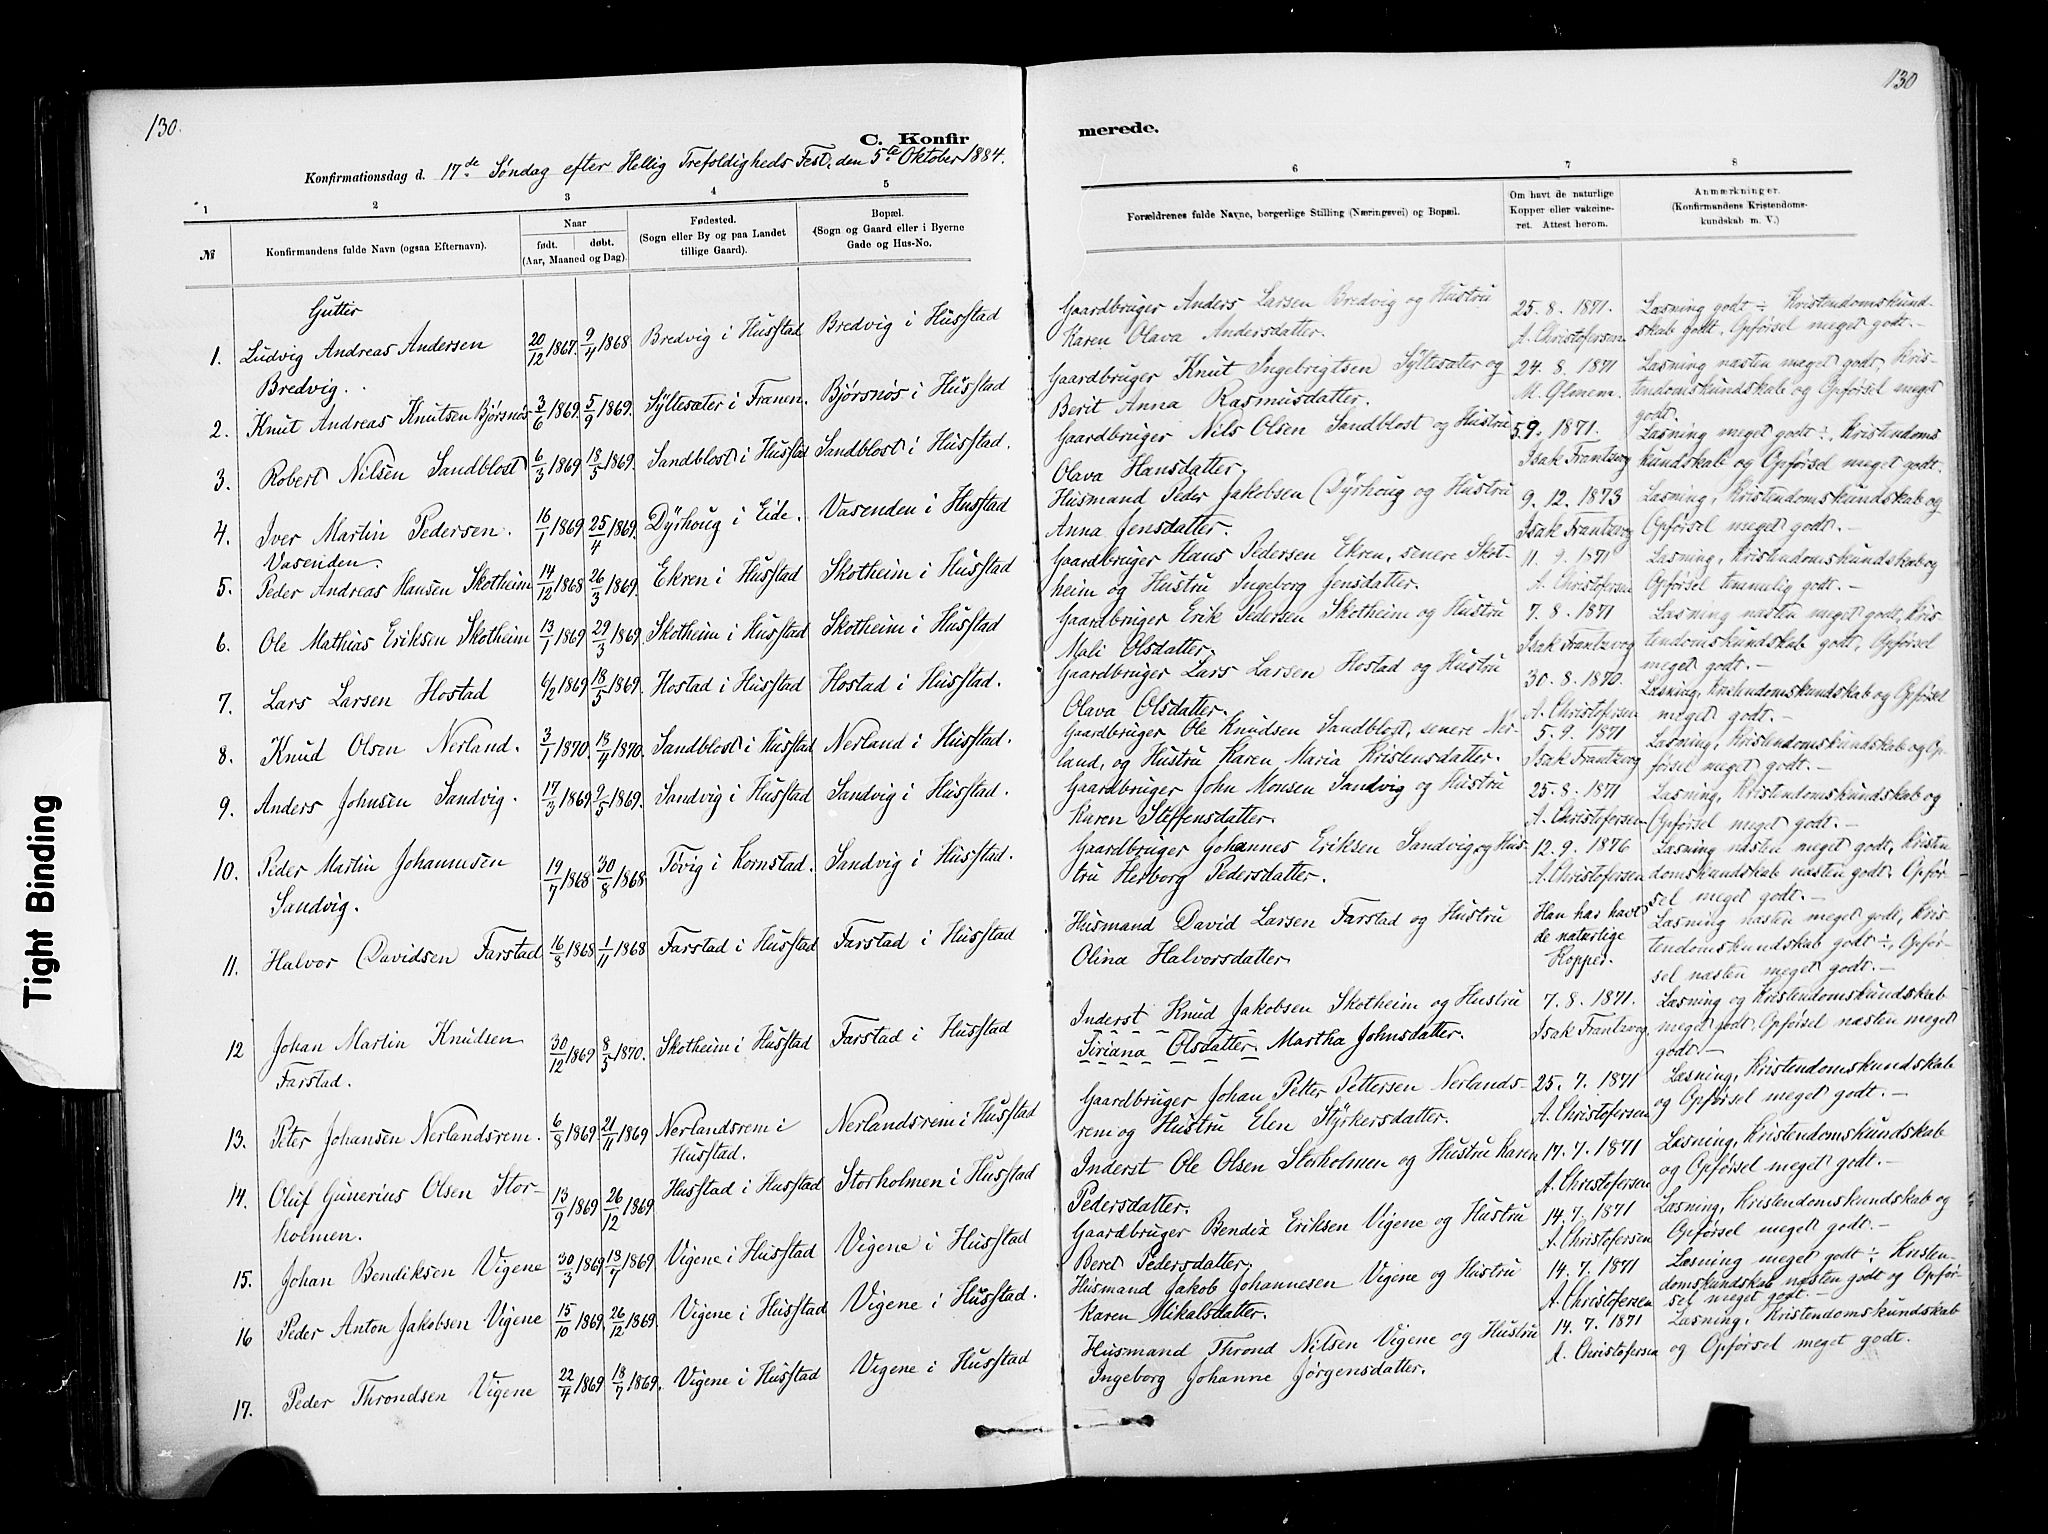 130.
130
C. Konfir
merede.
Konfirmationsdag d. 17de Søndag efter Hellig Trefoldigheds Fest, den 5te Oktober 1884.
1 2 3 4 5
6 7 8
№
Konfirmandens fulde Navn (ogsaa Efternavn).
Naar
født. døbt.
(Aar, Maaned og Dag).
Fødested.
(Sogn eller By og paa Landet
tillige Gaard).
Bopæl.
(Sogn og Gaard eller i Byerne
Gade og Hus-No.
Forældrenes fulde Navne, borgerlige Stilling (Næringsvei) og Bopæl.
Om havt de naturlige
Kopper eller vakcine-
ret. Attest herom.
Anmærkninger.
(Konfirmandens Kristendoms-
kundskab m. V.)
Gutter
1. Ludvig Andreas Andersen 20/12 1867. 9/4 1868 Bredvig i Husstad Bredvig i Husstad
Bredvig.
Gaardbruger Anders Larsen Bredvig og Hustru 25.8.1871. Læsning godt ÷ Kristendomskund-
Karen Olava Andersdatter. A. Christofersen skab godt, Opførsel meget godt.-
2. Knut Andreas Knutsen Bjørsnøs 3/6 1869. 5/9 1869. Syltesæter i Frænen. Bjørsnøs i Husstad
Gaardbruger Knut Ingebrigtsen Syltesæter og 24.8.1871 Læsning næsten meget godt, Kris-
Berit Anna Rasmusdatter. tendomskundskab og Opførsel meget
godt.
3. Robert Nilsen Sandblost 6/3 1869 18/5 1869. Sandblost i Husstad Sandblost i Husstad.
Gaardbruger Nils Olsen Sandblost og Hustru 5.9.1871. Læsning meget godt ÷, Kristendoms
Olava Hansdatter. Isak Frantzvog kundskab og Opførsel meget godt.
4. Iver Martin Pedersen. 16/1 1869 25/4 1869. Dyrhoug i Eide. Vasenden i Husstad
Vasenden.
Husmand Peder Jakobsen Dyrhoug og Hustru 9.12.1873 Læsning, Kristendomskundskab og
Anna Jensdatter. Isak Frantzvog Opførsel meget godt.-
5. Peder Andreas Hansen Skotheim 14/12 1868 26/3 1869. Ekren i Husstad Skotheim i Husstad
Gaardbruger Hans Pedersen Ekren, senere Skot- 11.9.1871 Læsning, Kristendomskundskab og
heim og Hustru Ingeborg Jensdatter. A. Christofersen Opførsel temmelig godt.-
6. Ole Mathias Eriksen Skotheim 13/1 1869 29/3 1869. Skotheim i Husstad Skotheim i Husstad
Gaardbruger Erik Pedersen Skotheim og Hustru 7.8.1871 Læsning næsten meget godt, Kris-
Mali Olsdatter. Isak Frantzvog tendomskundskab godt, Opførsel
meget godt.-
7. Lars Larsen Hostad 6/2 1869 18/5 1869. Hostad i Husstad Hostad i Husstad.
Gaardbruger Lars Larsen Hostad og Hustru 30.8.1870. Læsning, Kristendomskundskab og Opførsel
Olava Olsdatter. A. Christofersen meget godt.-
8. Knud Olsen Nerland. 3/1 1870 18/4 1870. Sandblost i Husstad Nerland i Husstad.
Gaardbruger Ole Knudsen Sandblost, senere Ner- 5.9.1871 Læsning, Kristendomskundskab og Op-
land, og Hustru Karen Maria Kristensdatter. Isak Frantzvog førsel meget godt.-
9. Anders Johnsen Sandvig. 17/3 1869 9/5 1869. Sandvig i Husstad Sandvig i Husstad.
Gaardbruger John Monsen Sandvig og Hustru 25.8.1871 Læsning, Kristendomskundskab og
Karen Steffensdatter. A. Christofersen Opførsel meget godt.-
10. Peder Martin Johannesen 19/7 1868 30/8 1868. Tøvig i Kornstad. Sandvig i Husstad.
Sandvig.
Gaardbruger Johannes Eriksen Sandvig og Hus- 12.9.1876 Læsning næsten meget godt, Kristen
tru Herborg Pedersdatter. A. Christofersen domskundskab næsten godt, Opfør-
sel meget godt.-
11. Halvor Davidsen Farstad 16/8 1868 1/11 1868 Farstad i Husstad Farstad i Husstad
Husmand David Larsen Farstad og Hustru Han har havt Læsning næsten meget godt, Kris-
Olina Halvorsdatter. de naturlige tendomskundskab godt ÷, Opfør-
Kopper. sel næsten meget godt.-
12 Johan Martin Knudsen 30/12 1869 8/5 1870. Skotheim i Husstad Farstad i Husstad
Farstad.
Inderst Knud Jakobsen Skotheim og Hustru 7.8.1871. Læsning og Kristendomskundskab
Siriana Olsdatter. Martha Johnsdatter. Isak Frantzvog meget godt, Opførsel næsten meget
godt-
13. Peter Johansen Nerlandsrem. 6/8 1869 21/11 1869 Nerlandsrem i Nerlandsrem i Husstad
Husstad.
Gaardbruger Johan Petter Pettersen Nerlands- 25.7.1871 Læsning, Kristendomskundskab
rem og Hustru Elen Styrkersdatter. A. Christofersen og Opførsel meget godt.-
14. Oluf Gunerius Olsen Stor- 13/9 1869 26/12 1869 Husstad i Husstad Storholmen i Husstad
holmen.
Inderst Ole Olsen Storholmen og Hustru Karen 14.7.1871 Læsning, Kristendomskundskab
Pedersdatter. A. Christofersen og Opførsel meget godt.-
15. Johan Bendiksen Vigene 30/3 1869 18/7 1869 Vigene i Husstad Vigene i Husstad
Gaardbruger Bendix Eriksen Vigene og Hustru 14.7.1871 Læsning, Kristendomskundskab og
Beret Pedersdatter. A. Christofersen Opførsel meget godt.-
16 Peder Anton Jakobsen Vigene 15/10 1869. 26/12 1869 Vigene i Husstad Vigene i Husstad.
Husmand Jakob Johannesen Vigene og Hustru 14.7.1871 Læsning meget godt ÷ Kristen-
Karen Mikalsdatter. A. Christofersen domskundskab næsten godt og Opfør-
sel meget godt.-
17. Peder Throndsen Vigene 22/4 1869 18/7 1869. Vigene i Husstad Vigene i Husstad
Husmand Thrond Nilsen Vigene og Hustru 14.7.1871 Læsning, Kristendomskundskab
Ingeborg Johanne Jørgensdatter. A. Christofersen og Opførsel meget godt.
Tight Binding